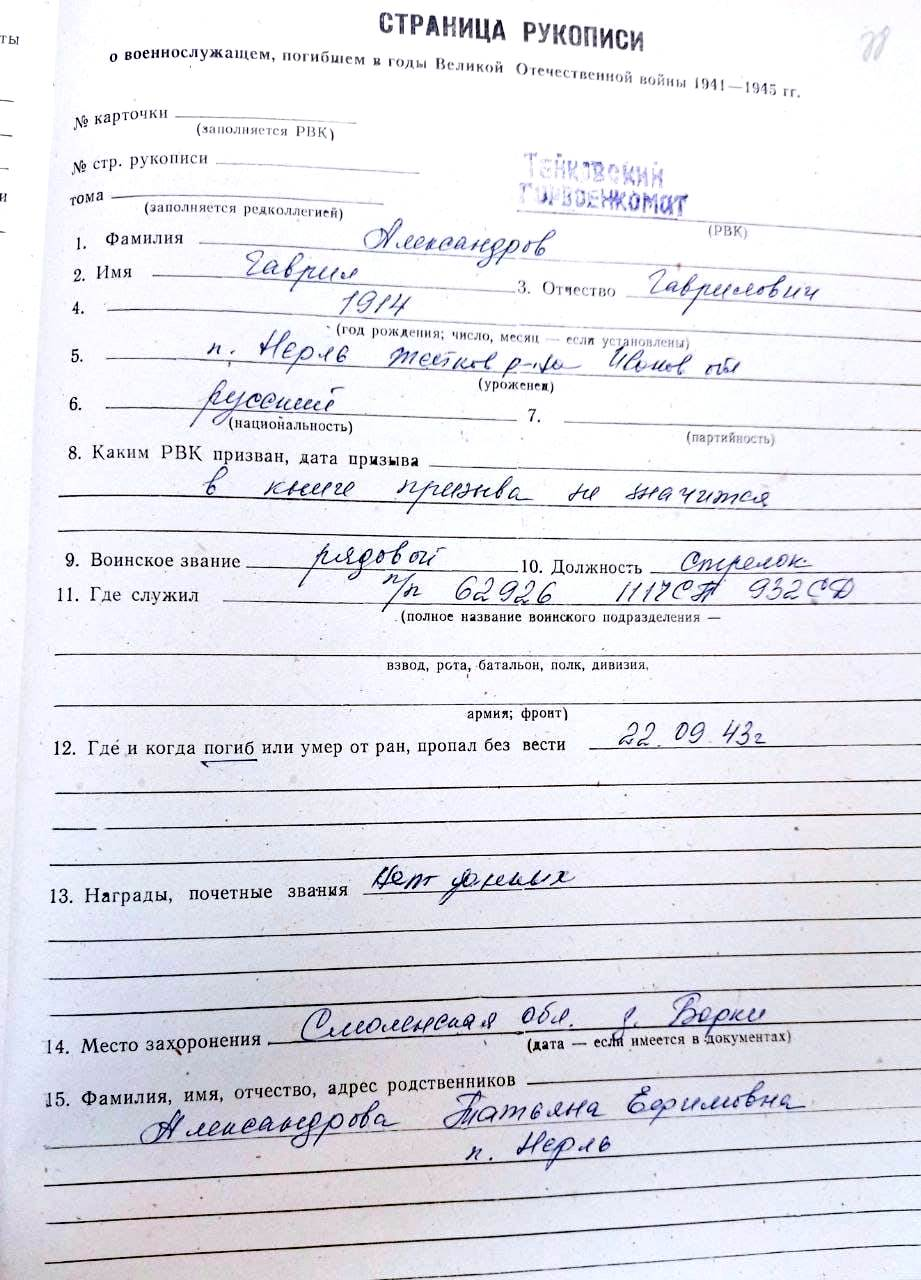 ты
СТРАНИЦА РУКОПИСИ
о военнослужащем, погибшем в годы Великой Отечественной войны 1941—1945 гг.
№ карточки
(заполняется РВК)
№ стр. рукописи
Тейковский
Горвоенкомат
и
тома
(заполняется редколлегией)
(РВК)
1. Фамилия Александров
2. Имя Гаврил 3. Отчество Гаврилович
4. 1914
(год рождения; число, месяц — если установлены)
5. п. Нерль Тейков р-на Иванов обл
(уроженец)
6. русский 7.
(национальность) (партийность)
8. Каким РВК призван, дата призыва
в книге призыва не значится
9. Воинское звание рядовой 10. Должность Стрелок
11. Где служил п/п 62926 932СД
(полное название воинского подразделения —
взвод, рота, батальон, полк, дивизия,
армия; фронт)
12. Где и когда погиб или умер от ран, пропал без вести 22.09.43г
13. Награды, почетные звания Нет данных
14. Место захоронения Смоленская обл. д. Борки
(дата — если имеется в документах)
15. Фамилия, имя, отчество, адрес родственников
Александрова Татьяна Ефимовна
п. Нерль